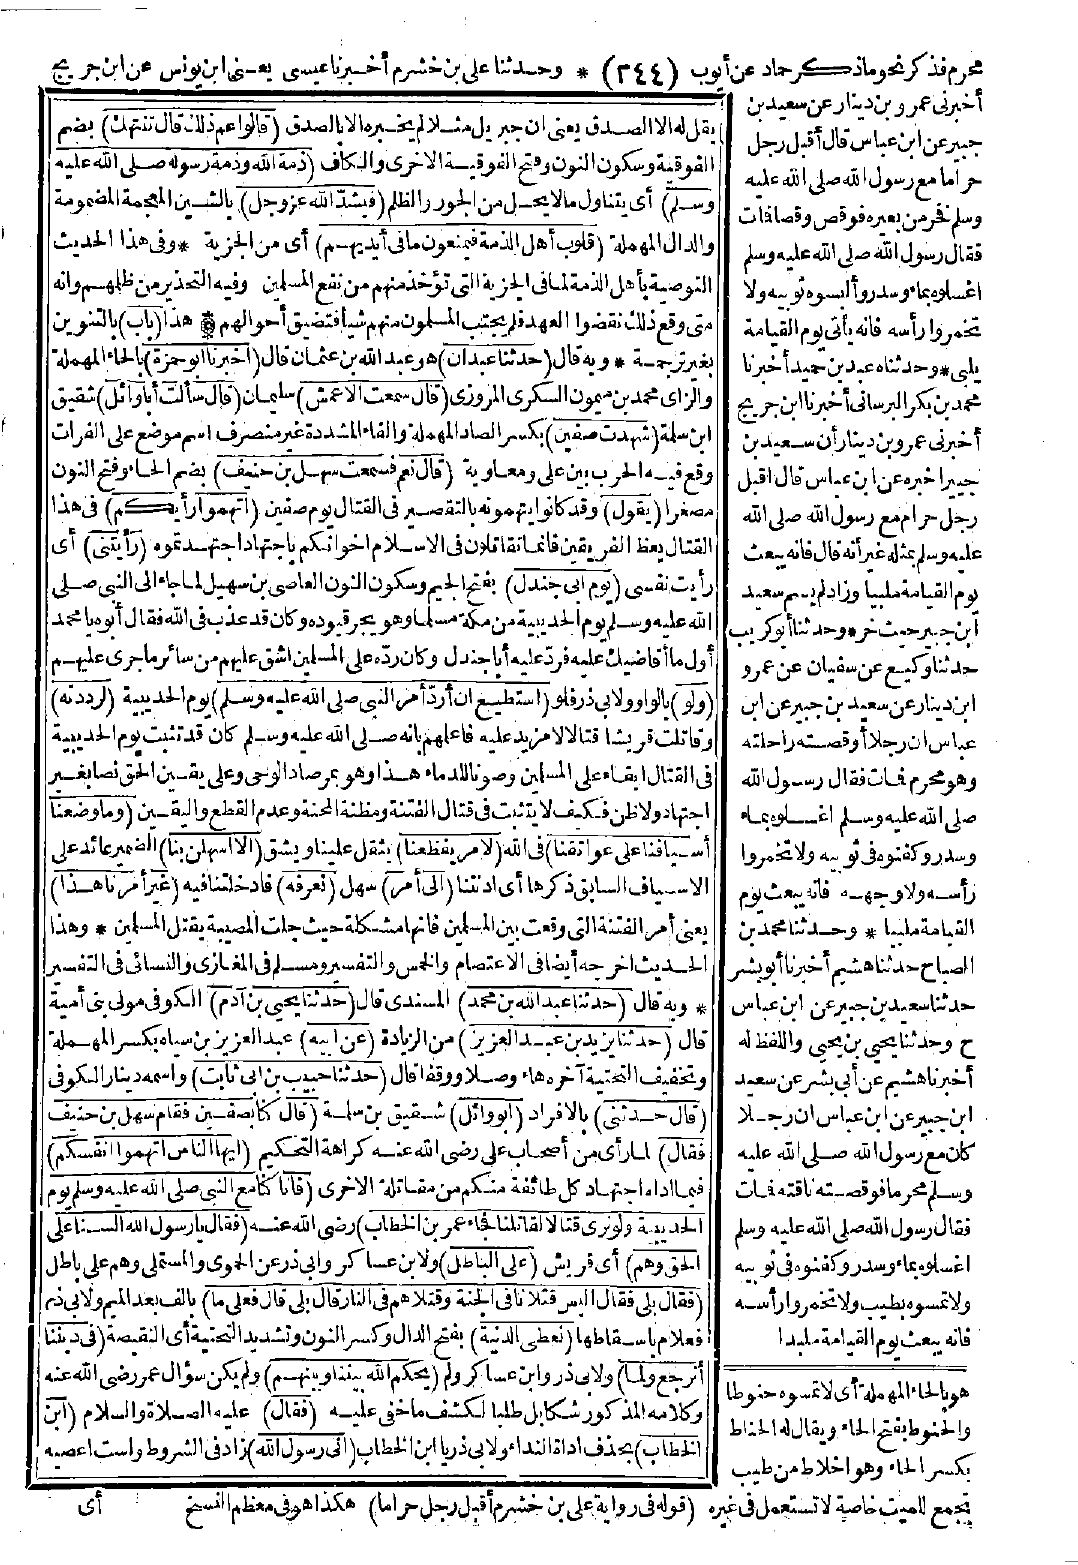 محرم فذكر نحو ما ذكر حماد عن أيوب (٢٤٤) * وحدثنا على بن خشرم أخبرنا عيسى يعنى ابن يونس عن ابن جريج
أخبرنى عمرو بن دينار عن سعيد بن
جبير عن ابن عباس قال أقبل رجل
حراما مع رسول الله صلى الله عليه
وسلم فخر من بعيره فوقص وقصا فات
فقال رسول الله صلى الله عليه وسلم
اغسلوه بماء وسدر وألبسوه ثوبيه ولا
تخمروا رأسه فانه يأتى يوم القيامة
يلبى * وحدثناه عبد بن حميد أخبرنا
محمد بن بكر البرسانى أخبرنا ابن جريج
أخبرنى عمرو بن دينار أن سعيد بن
جبير اخبره عن ابن عباس قال اقبل
رجل حرام مع رسول الله صلى الله
عليه وسلم بمثله غير أنه قال فانه يبعث
يوم القيامة ملبيا وزاد لم يسم سعيد
ابن جبير حيث خر * وحدثنا أبو كريب
حدثنا وكيع عن سفيان عن عمرو
ابن دينار عن سعيد بن جبير عن ابن
عباس ان رجلا أوقصته راحلته
وهو محرم فات فقال رسول الله
صلى الله عليه وسلم اغسلوه بماء
وسدر وكفنوه فى ثوبيه ولا تخمروا
رأسه ولا وجهه فانه يبعث يوم
القيامة ملبيا * وحدثنا محمد بن
الصباح حدثنا هشيم أخبرنا أبو بشر
حدثنا سعيد بن جبير عن ابن عباس
ح وحدثنا يحيى بن يحيى واللفظ له
أخبرنا هشيم عن أبى بشر عن سعيد
ابن جبير عن ابن عباس ان رجلا
كان مع رسول الله صلى الله عليه
وسلم محرما فوقصته ناقته فات
فقال رسول الله صلى الله عليه وسلم
اغسلوه بماء وسدر وكفنوه فى ثوبيه
ولا تمسوه بطيب ولا تخمروا رأسه
فانه يبعث يوم القيامة ملبدا
هو بالحاء المهملة أى لا تمسوه حنوطا
والحنوط بفتح الحاء ويقال له الحناط
بكسر الحاء وهو اخلاط من طيب
تجمع للميت خاصة لا تستعمل فى غيره (قوله فى رواية على بن خشرم أقبل رجل حراما) هكذا هو فى معظم النسخ أى
يقل له الا الصدق يعنى ان جبريل مثلا لم يخبره الا بالصدق (قالوا عم ذلك قال تنتهك) بضم
الفوقية وسكون النون وفتح الفوقية الاخرى والكاف (ذمة الله وذمة رسوله صلى الله عليه
وسلم) أى يتناول ما لا يحل من الجور والظلم (فيشد الله عز وجل) بالشين المعجمة المضمومة
والدال المهملة (قلوب أهل الذمة فيمنعون ما فى أيديهم) أى من الجزية * وفى هذا الحديث
التوصية بأهل الذمة لما فى الجزية التى تؤخذ منهم من نفع المسلمين وفيه التحذير من ظلمهم وانه
متى وقع ذلك نقضوا العهد فلم يجتب المسلمون منهم شيأ فتضيق أحوالهم * هذا (باب) بالتنوين
بغير ترجمة * وبه قال (حدثنا عبدان) هو عبد الله بن عثمان قال (اخبرنا ابو حمزة) بالحاء المهملة
والزاى محمد بن ميمون السكرى المروزى (قال سمعت الاعمش) سليمان (قال سألت أبا وائل) شقيق
ابن سلمة (شهدت صفين) بكسر الصاد المهملة والفاء المشددة غير منصرف اسم موضع على الفرات
وقع فيه الحرب بين على ومعاوية (قال نعم فسمعت سهل بن حنيف) بضم الحاء وفتح النون
مصغرا (يقول) وقد كانوا يتهمونه بالتقصير فى القتال يوم صفين (اتهموا رأيكم) فى هذا
القتال يعظ الفريقين فانما تقاتلون فى الاسلام اخوانكم باجتهاد اجتهدتموه (رأيتنى) أى
رأيت نفسى (يوم ابى جندل) بفتح الجيم وسكون النون العاصى بن سهيل لما جاء الى النبى صلى
الله عليه وسلم يوم الحديبية من مكة مسلما وهو يجر قيوده وكان قد عذب فى الله فقال أبوه يا محمد
أول ما أقاضيك عليه فرد عليه أبا جندل وكان رده على المسلمين اشق عليهم من سائر ما جرى عليهم
(ولو) بالواو ولابى ذر فلو (استطيع ان أرد أمر النبى صلى الله عليه وسلم) يوم الحديبية (لرددته)
وقاتلت قريشا قتالا لا مزيد عليه فاعلمهم بانه صلى الله عليه وسلم كان قد تثبت يوم الحديبية
فى القتال ابقاء على المسلمين وصونا للدماء هذا وهو بمرصاد الوحى وعلى يقين الحق نصا بغير
اجتهاد ولا ظن فكيف لا يتثبت فى قتال الفتنة ومظنة المحنة وعدم القطع واليقين (وما وضعنا
أسيافنا على عواتقنا) فى الله (لامر يفظعنا) يثقل علينا ويشق (الا اسهلن بنا) الضمير عائد على
الاسياف السابق ذكرها أى ادنتنا (الى أمر) سهل (نعرفه) فادخلتنا فيه (غير أمرنا هذا)
يعنى أمر الفتنة التى وقعت بين المسلمين فانها مشكلة حيث جلت المصيبة بقتل المسلمين * وهذا
الحديث اخرجه أيضا فى الاعتصام والخمس والتفسير ومسلم فى المغازى والنسائى فى التفسير
* وبه قال (حدثنا عبد الله بن محمد) المسندى قال (حدثنا يحيى بن آدم) الكوفى مولى بنى أمية
قال (حدثنا يزيد بن عبد العزيز) من الزيادة (عن ابيه) عبد العزيز بن سياه بكسر المهملة
وتخفيف التحتية آخره هاء وصلا ووقفا قال (حدثنا حبيب بن ابى ثابت) واسمه دينار الكوفى
(قال حدثنى) بالافراد (ابو وائل) شقيق بن سلمة (قال كنا بصفين فقام سهل بن حنيف
فقال) لما رأى من أصحاب على رضى الله عنه كراهة التحكيم (ايها الناس اتهموا انفسكم)
فيما اداه اجتهاد كل طائفة منكم من مقاتلة الاخرى (فانا كنا مع النبى صلى الله عليه وسلم يوم
الحديبية ولو نرى قتالا لقاتلنا فجاء عمر بن الخطاب) رضى الله عنه (فقال يا رسول الله السنا على
الحق وهم) أى قريش (على الباطل) ولابن عساكر وابى ذر عن الحموى والمستملى وهم على باطل
(فقال بلى فقال اليس قتلانا فى الجنة وقتلاهم فى النار قال بلى قال فعلى ما) بالف بعد الميم ولابى ذر
فعلام باسقاطها (نعطى الدنية) بفتح الدال وكسر النون وتشديد التحتية أى النقيصة (فى ديننا
أنرجع ولما) ولابى ذر وابن عساكر ولم (يحكم الله بيننا وبينهم) ولم يكن سؤال عمر رضى الله عنه
وكلامه المذكور شكا بل طلبا لكشف ما خفى عليه (فقال) عليه الصلاة والسلام (ابن
الخطاب) بحذف اداة النداء ولابى ذر يا ابن الخطاب (انى رسول الله) زاد فى الشروط ولست اعصيه